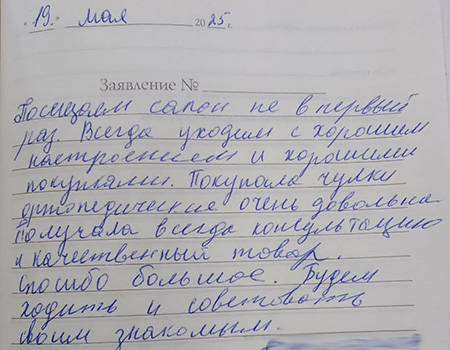 "19" мая 2025 г.
Заявление №
Посещаем салон не в первый
раз. Всегда уходим с хорошим
настроением и хорошими
покупками. Покупала чулки
ортопедические очень довольна
Получала всегда консультацию
и качественный товар.
спасибо большое. Будем
ходить и советовать
своим знакомым.